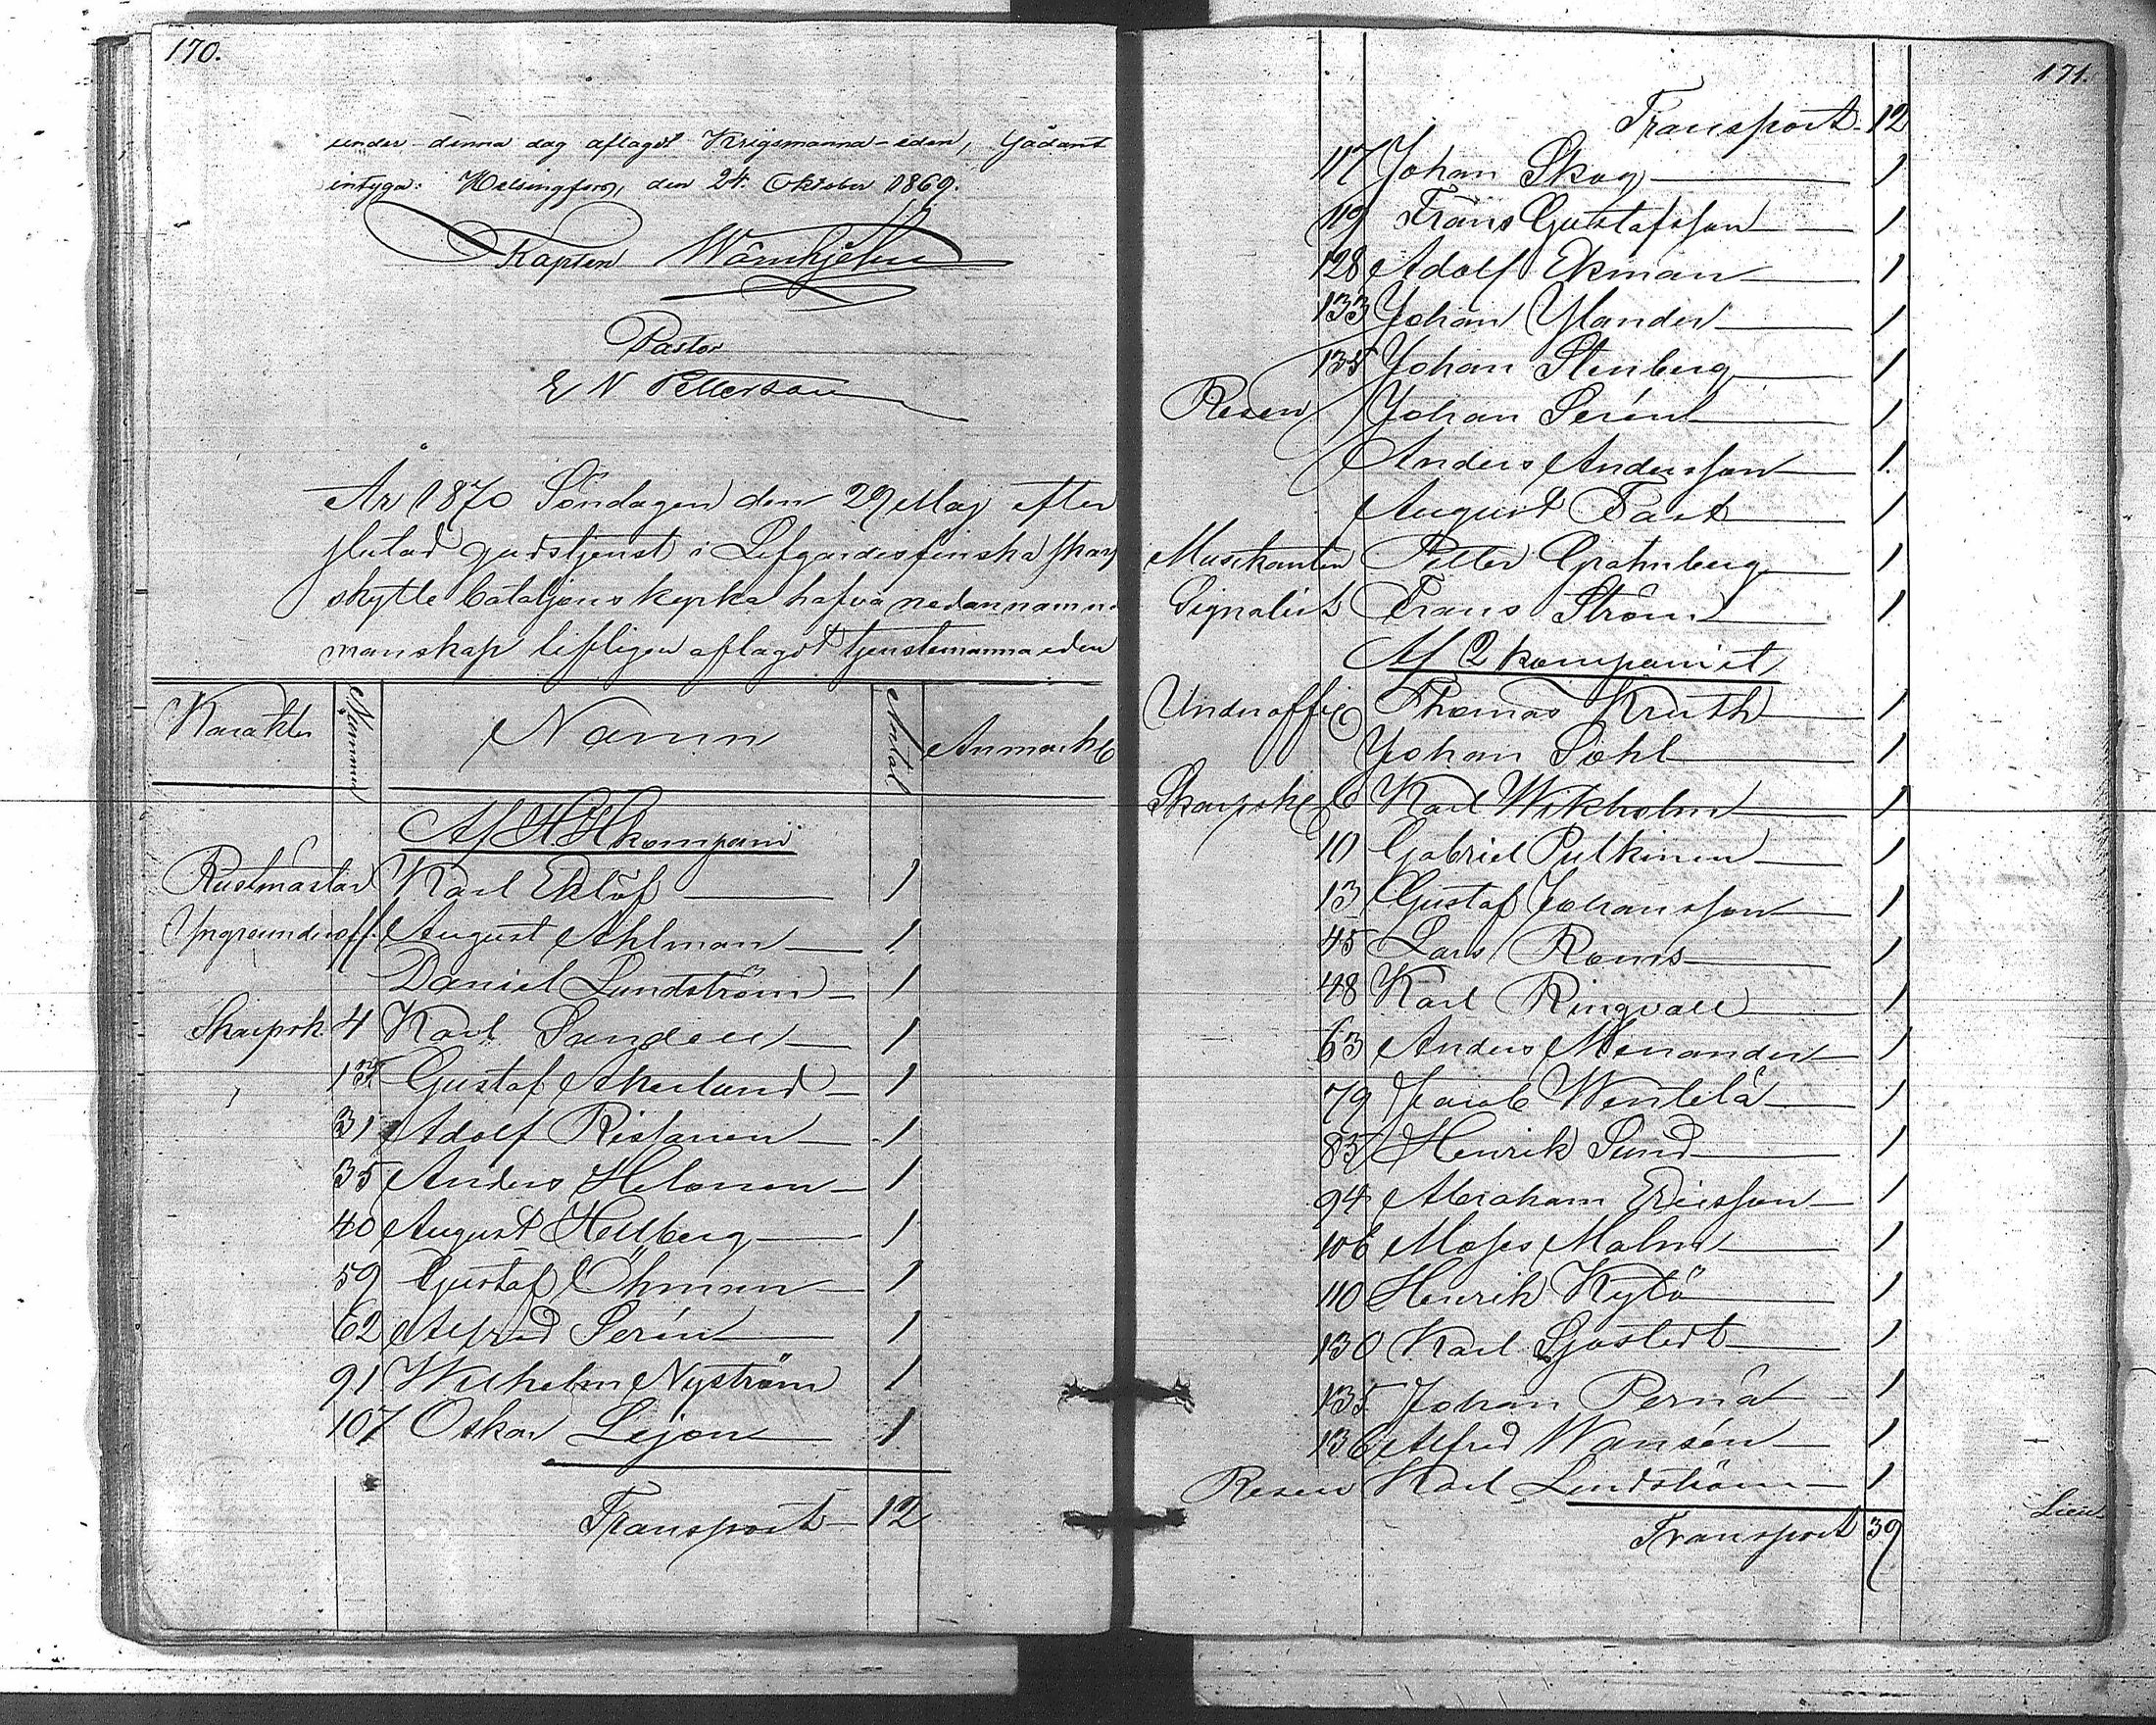 170.
under denna dag aflagt Krigsmanna-eden, Sådant
intyga: Helsingfors, den 24. Oktober 1869.
Kapten
Pastor
E N Petterson
År 1870 Söndagen den 29 Maj efter
slutad gudstjenst i Lifgardes finska skarp
skytte bataljons kyrka hafva nedannamn.
manskap lifligen aflagt tjenstemanna eden
Karakter Nummer Namn Antal Anmärkn
Af H. H kompani
Rustmästar Karl Eklöf 1
Yngreunderoff. August Ahlman 1
Daniel Lundström 1
Skarpsk 4 Karl Sundell 1
Gustaf Åkerlund 1
31 Adolf Ristanen 1
35 Anders Helonen 1
40 August Hellberg 1
59 Gustaf Öhman 1
62 Alfred Serén 1
91 Wilhelm Nyström 1
107 Oskar Lejon 1
Transport 12
171.
Transport 12
117 Johan Skog 1
119 Frans Gustafsson 1
128 Adolf Ekman 1
133 Johan Ylander 1
135 Johan Stenberg 1
Reserv Johan Serén 1
Anders Andersson 1
August Fast 1
Musikanten Petter Grahnberg 1
Signalist Frans Ström 1
Af 2 kompaniet
Underoffic Thomas Kruth 1
Johan Sohl 1
Skarpsk 6 Karl Wikholm 1
10 Gabriel Pulkinen 1
13 Gustaf Johansson 1
45 Lars Roms 1
48 Karl Ringvall 1
63 Anders Menander 1
79 Jacob Wentelä 1
85 Henrik Sund 1
94 Abraham Ericsson 1
106 Moses Malm 1
110 Henrik Kylä 1
130 Karl Sjöstedt 1
135 Johan Pernä 1
136 Alfred Wansén 1
Reserv Karl Lindström 1
Transport 39
Lieu